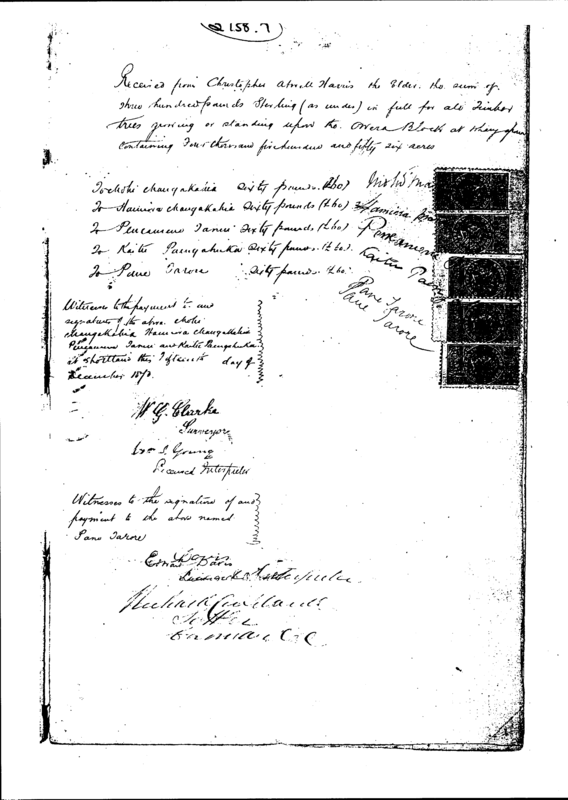 2158.7
Received from Christopher Atwell Harris the Elder. the sum of
three hundred pounds Sterling (as under) in full for all Timber
trees growing or standing upon the Owera Block at
containing Four thousand five hundred and fifty six acres
To Hohi Mangakahia Sixty pounds. (£60)
To Hamiora Mangakahia Sixty pounds (£60) Hamiora
To Penamene Tanui Sixty pounds (£60) Penamene
To Kaitu Paengahuka Sixty pounds. (£60). Kaitu
To Pane Tarore Sixty pounds. £60. Pane Tarore
Pane Tarore
Witnesses to the payment to and
signature of the above
Mangakahia Hamiora Mangakahia
Tanui and Kaitu Paengahuka
at Shortland this Fifteenth day of
December 1873.
W. G. Clarke
Surveyor
Wm. S. Young
Licensed Interpreter
Witnesses to the signature of and
payment to the above named
Pane Tarore
Davis
Ernest Davis
Licensed Interpreter
Richard
Settler